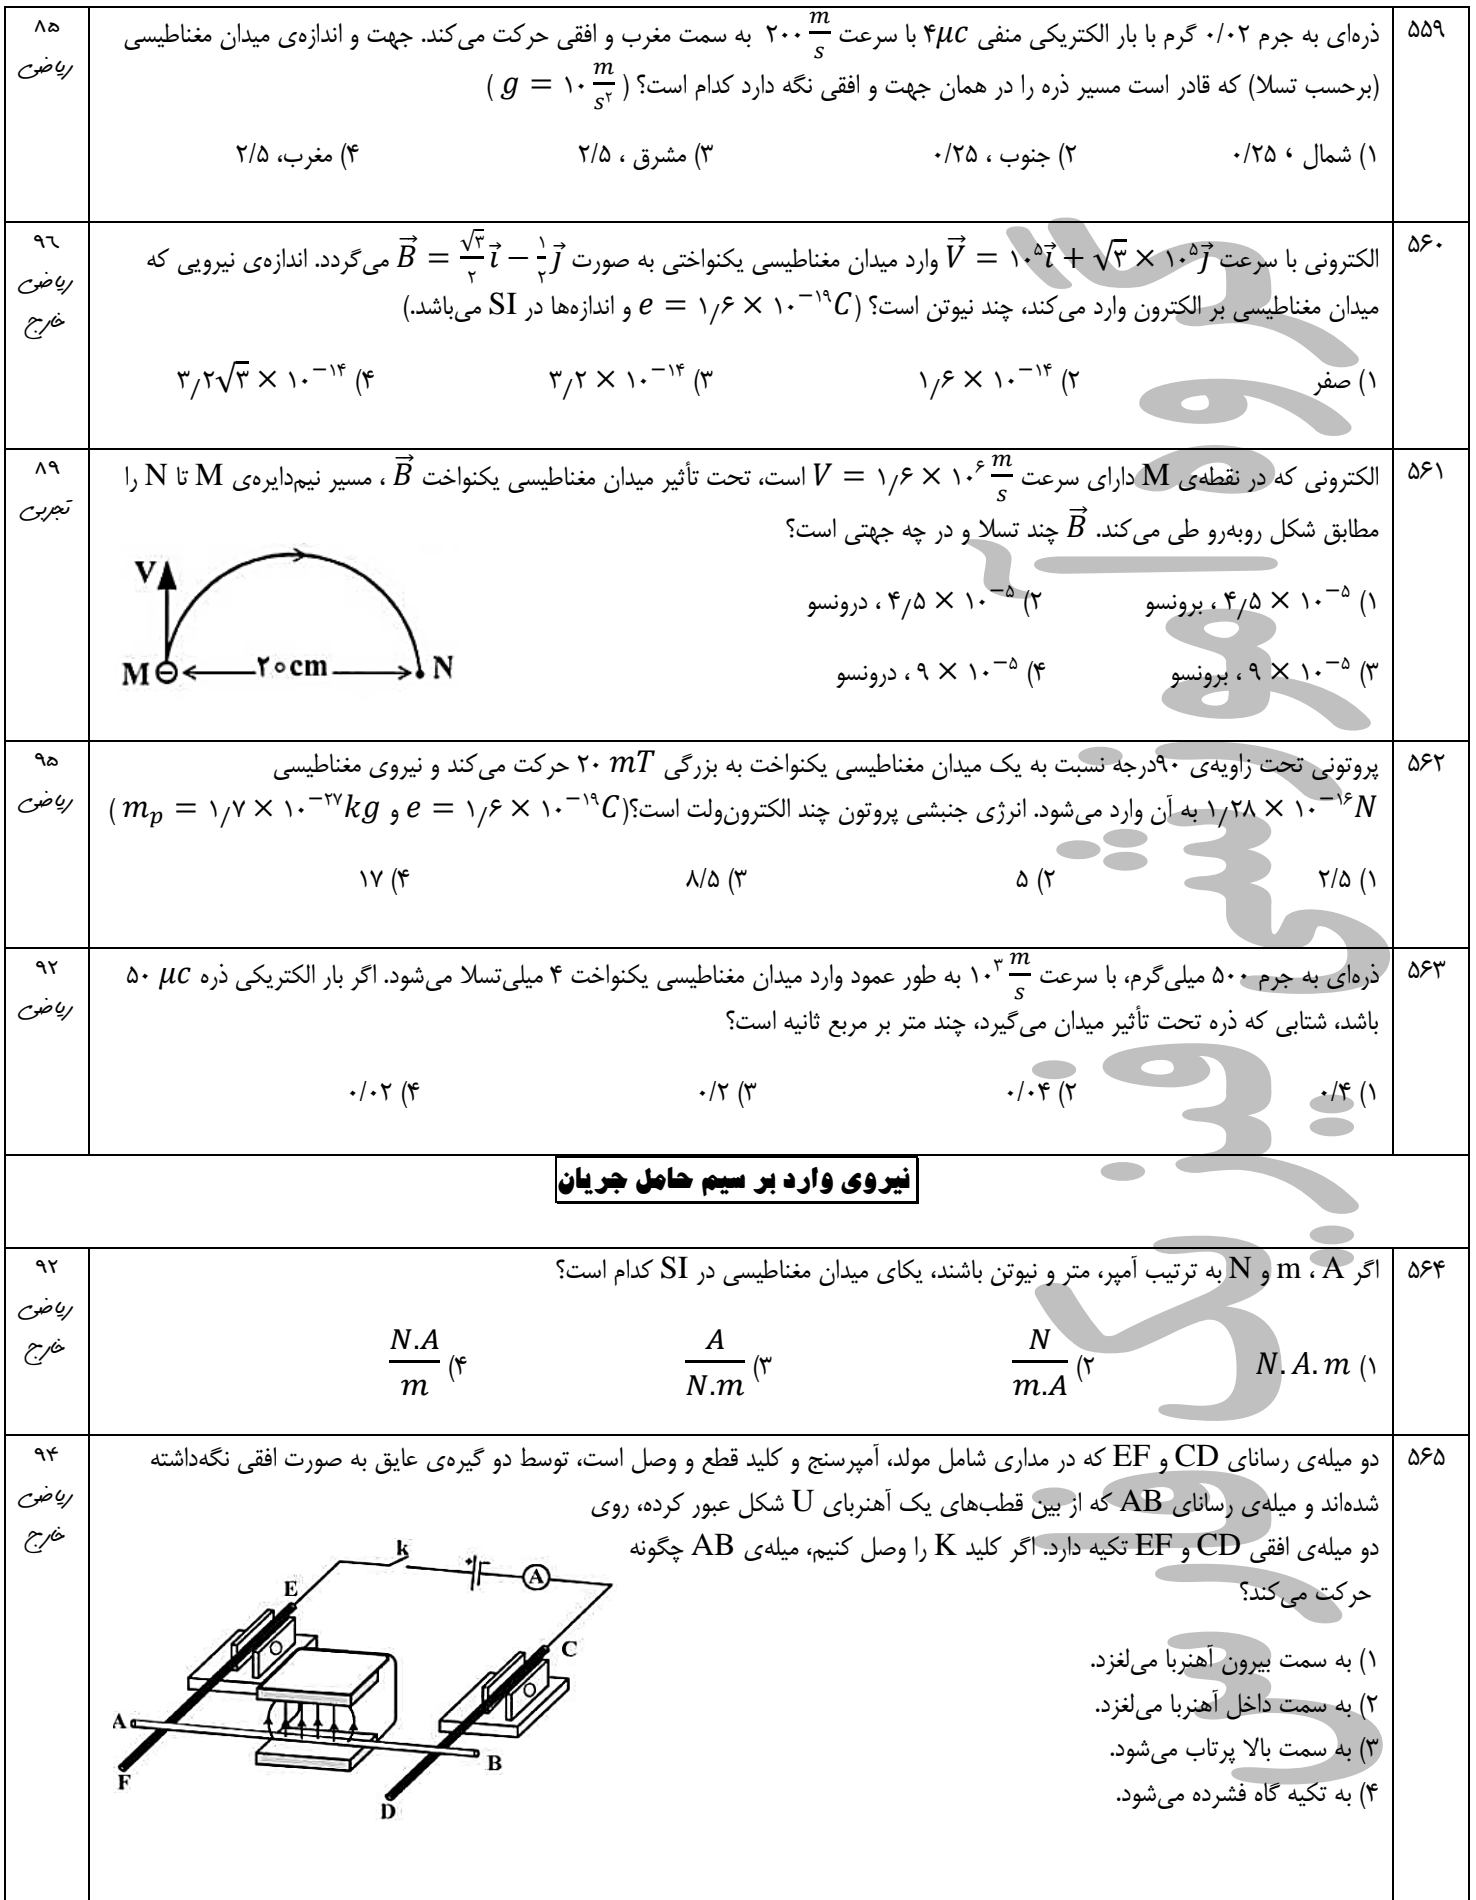 ۵۵۹
ذره‌ای به جرم ۰/۰۲ گرم با بار الکتریکی منفی ۴μc با سرعت ۲۰۰ m/s به سمت مغرب و افقی حرکت می‌کند. جهت و اندازه‌ی میدان مغناطیسی
(برحسب تسلا) که قادر است مسیر ذره را در همان جهت و افقی نگه دارد کدام است؟ ( g = ۱۰ m/s^۲ )
۱) شمال ، ۰/۲۵ ۲) جنوب ، ۰/۲۵ ۳) مشرق ، ۲/۵ ۴) مغرب، ۲/۵
۸۵
ریاضی
۵۶۰
الکترونی با سرعت V⃗ = ۱۰^۵ i⃗ + √۳ × ۱۰^۵ j⃗ وارد میدان مغناطیسی یکنواختی به صورت B⃗ = √۳/۲ i⃗ − ۱/۲ j⃗ می‌گردد. اندازه‌ی نیرویی که
میدان مغناطیسی بر الکترون وارد می‌کند، چند نیوتن است؟ (e = ۱٫۶ × ۱۰^−۱۹ C و اندازه‌ها در SI می‌باشد.)
۱) صفر ۲) ۱٫۶ × ۱۰^−۱۴ ۳) ۳٫۲ × ۱۰^−۱۴ ۴) ۳٫۲√۳ × ۱۰^−۱۴
۹۶
ریاضی
خارج
۵۶۱
الکترونی که در نقطه‌ی M دارای سرعت V = ۱٫۶ × ۱۰^۶ m/s است، تحت تأثیر میدان مغناطیسی یکنواخت B⃗ ، مسیر نیم‌دایره‌ی M تا N را
مطابق شکل روبه‌رو طی می‌کند. B⃗ چند تسلا و در چه جهتی است؟
۱) ۴٫۵ × ۱۰^−۵ ، برونسو ۲) ۴٫۵ × ۱۰^−۵ ، درونسو
۳) ۹ × ۱۰^−۵ ، برونسو ۴) ۹ × ۱۰^−۵ ، درونسو
V
M ۲۰cm N
۸۹
تجربی
۵۶۲
پروتونی تحت زاویه‌ی ۹۰درجه نسبت به یک میدان مغناطیسی یکنواخت به بزرگی ۲۰ mT حرکت می‌کند و نیروی مغناطیسی
۱٫۲۸ × ۱۰^−۱۶ N به آن وارد می‌شود. انرژی جنبشی پروتون چند الکترون‌ولت است؟(e = ۱٫۶ × ۱۰^−۱۹ C و m_p = ۱٫۷ × ۱۰^−۲۷ kg )
۱) ۲/۵ ۲) ۵ ۳) ۸/۵ ۴) ۱۷
۹۵
ریاضی
۵۶۳
ذره‌ای به جرم ۵۰۰ میلی‌گرم، با سرعت ۱۰^۳ m/s به طور عمود وارد میدان مغناطیسی یکنواخت ۴ میلی‌تسلا می‌شود. اگر بار الکتریکی ذره ۵۰ μc
باشد، شتابی که ذره تحت تأثیر میدان می‌گیرد، چند متر بر مربع ثانیه است؟
۱) ۰/۴ ۲) ۰/۰۴ ۳) ۰/۲ ۴) ۰/۰۲
۹۲
ریاضی
نیروی وارد بر سیم حامل جریان
۵۶۴
اگر m ، A و N به ترتیب آمپر، متر و نیوتن باشند، یکای میدان مغناطیسی در SI کدام است؟
۱) N.A.m ۲) N/m.A ۳) A/N.m ۴) N.A/m
۹۲
ریاضی
خارج
۵۶۵
دو میله‌ی رسانای CD و EF که در مداری شامل مولد، آمپرسنج و کلید قطع و وصل است، توسط دو گیره‌ی عایق به صورت افقی نگه‌داشته
شده‌اند و میله‌ی رسانای AB که از بین قطب‌های یک آهنربای U شکل عبور کرده، روی
دو میله‌ی افقی CD و EF تکیه دارد. اگر کلید K را وصل کنیم، میله‌ی AB چگونه
حرکت می‌کند؟
۱) به سمت بیرون آهنربا می‌لغزد.
۲) به سمت داخل آهنربا می‌لغزد.
۳) به سمت بالا پرتاب می‌شود.
۴) به تکیه گاه فشرده می‌شود.
k
+
A
E
C
A
B
F
D
۹۴
ریاضی
خارج